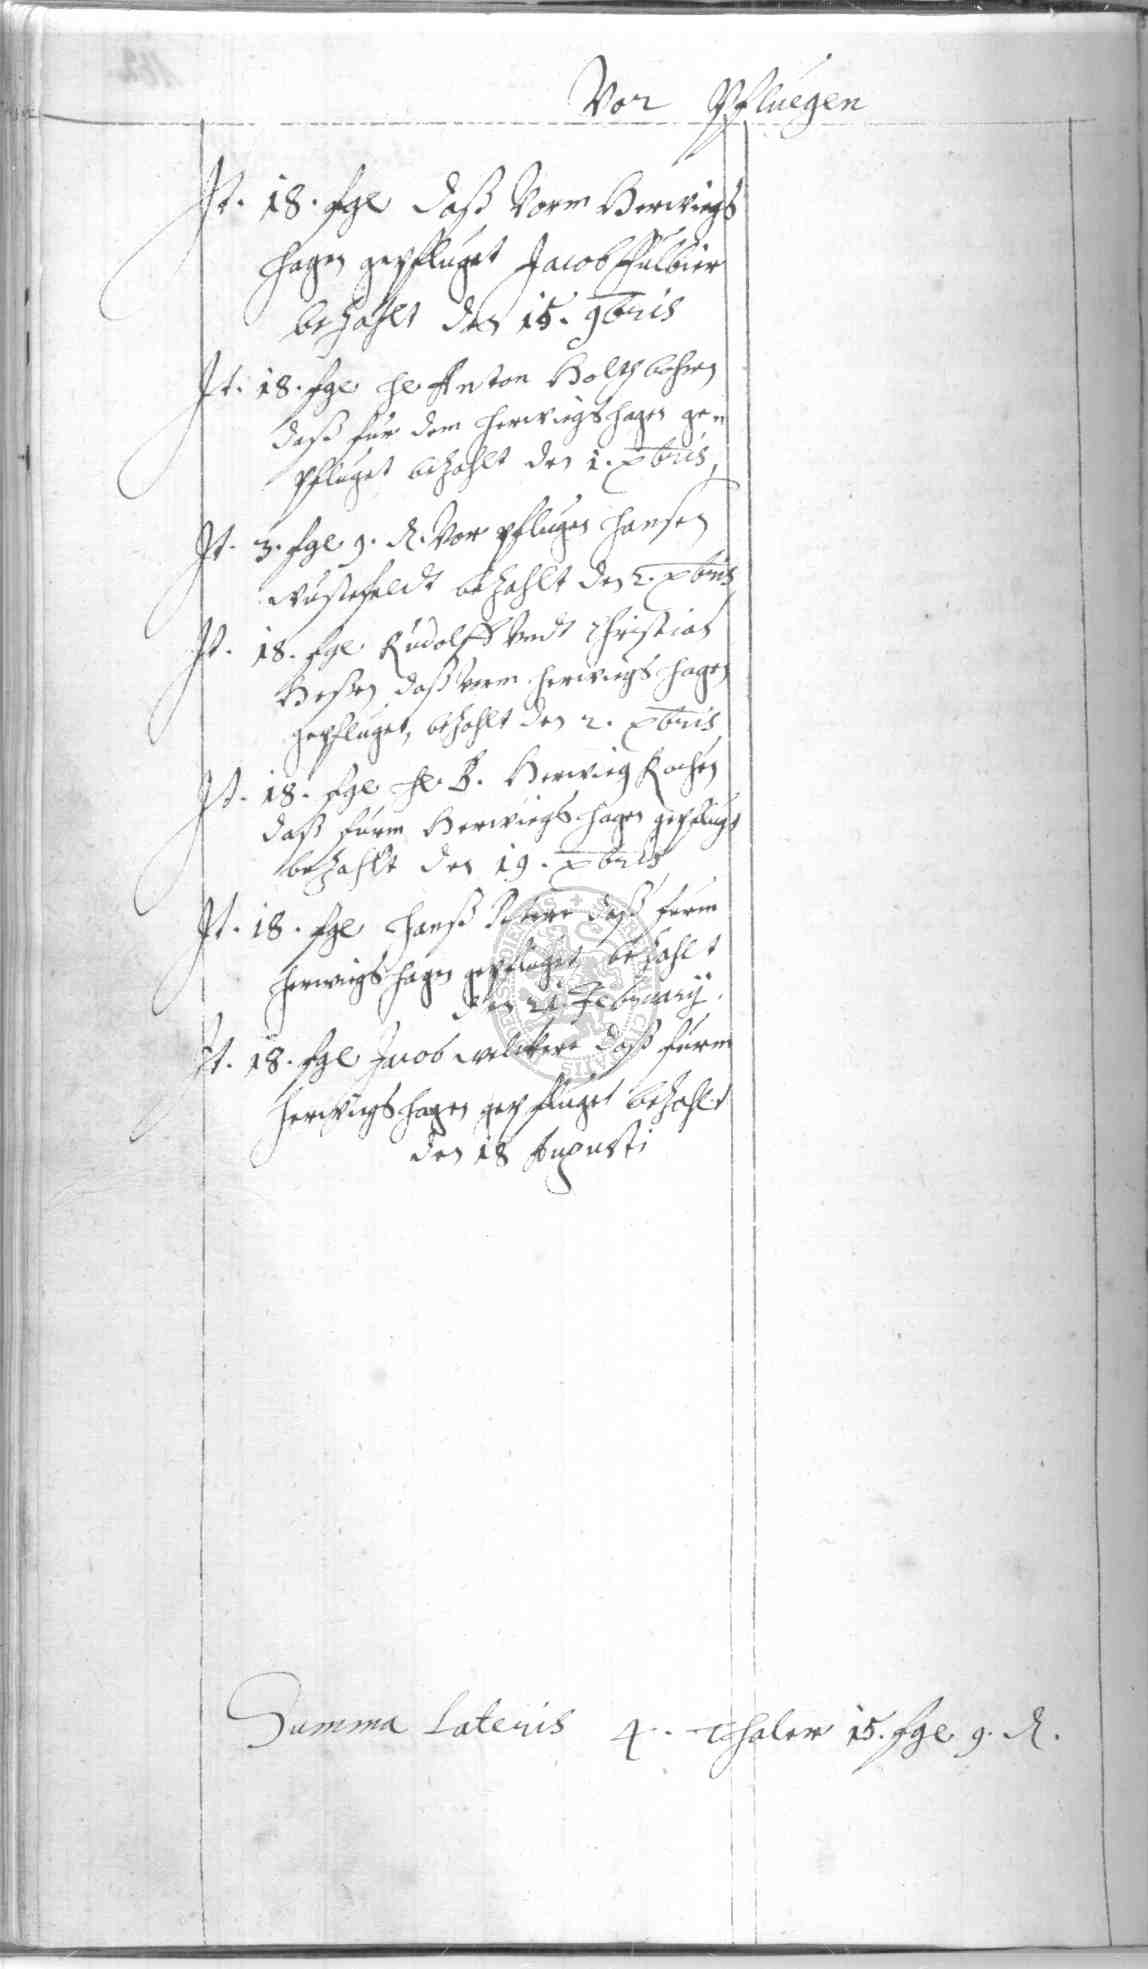 Vor Pfluegen
It. 18. sgl daß Vorm Herwigs
hagen gepfluget Jacob Fulbier
bezahlt den 15. 9bris
It. 18. sgl H Anton
daß fur dem Herwigshagen ge=
pfluget bezahlt den 1. xbris
It. 3. sgl 9. d. Vor pflugen Hansen
Wustefeldt bezahlt den 2. xbris
It. 18. sgl Rudolff Vndt Christian
Heßen daß Vorm Herwigshagen
gepfluget, bezahlt den 2. xbris
It. 18. sgl H B. Herwig Kochen
daß furm Herwigshagen gepflugt
bezahlt den 19. xbris
It. 18. sgl Hanß daß furm
Herwigshagen gepfluget bezahlt
den 21. February.
It. 18. sgl Jacob daß furm
Herwigshagen gepfluget bezahlt
den 18 Augusti
Summa Lateris 4. Thaler 15. sgl 9. d.